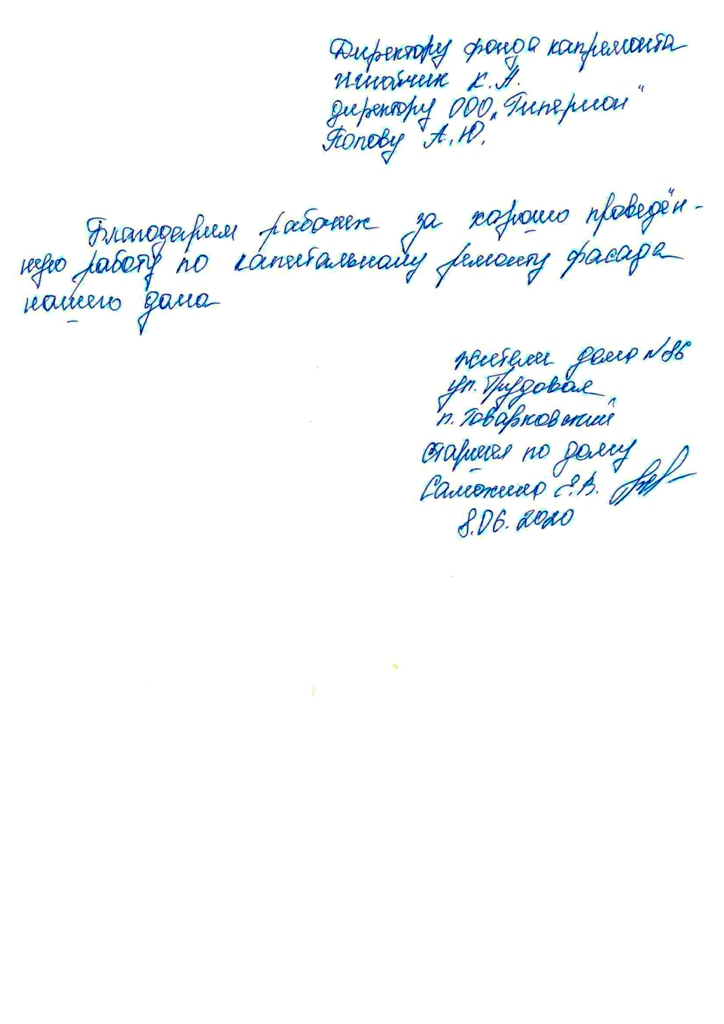 Директору фонда капремонта
К. А.
директору ООО „Гиперион"
Попову А. Ю.
Благодарим рабочих за хорошо проведён-
ную работу по капитальному ремонту фасада
нашего дома
жители дома №86
ул. Трудовая
п. Товарковский
старшая по дому
Саможина Е. В.
8.06.2020